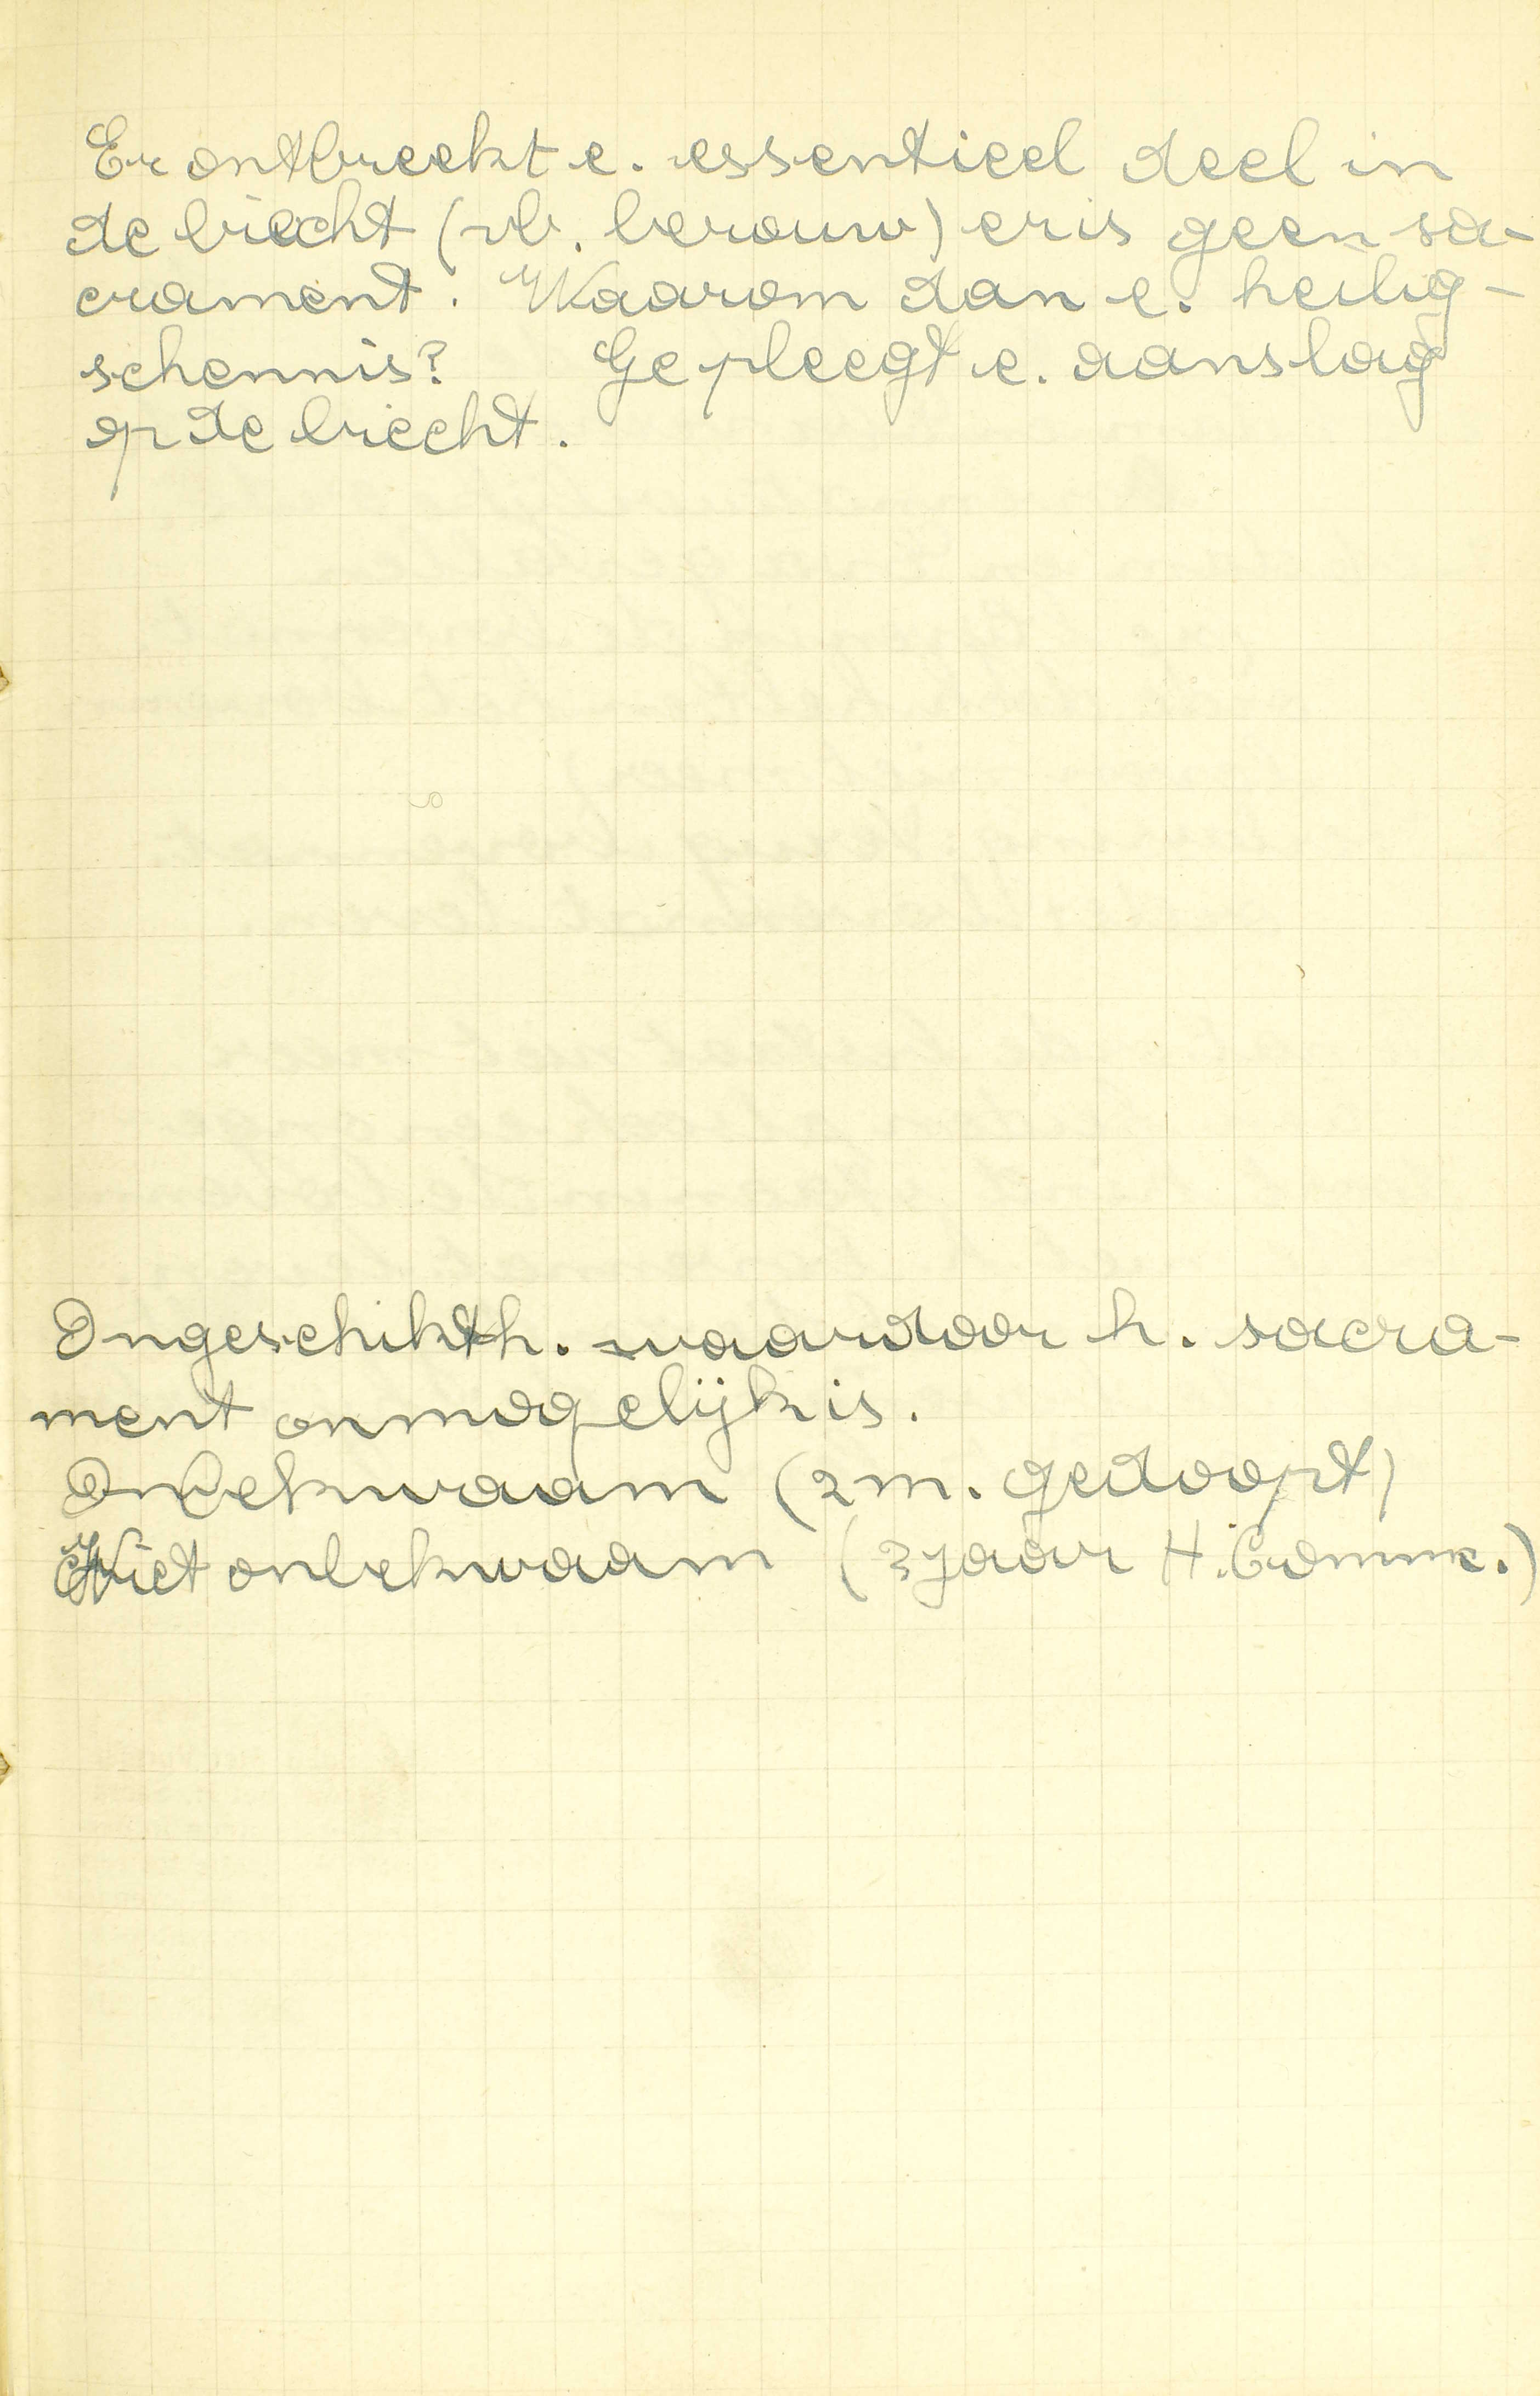 Er ontbreekt e. essentieel deel in
de biecht (vb. berouw) er is geen sa-
crament. Waarom dan e. heilig-
schennis? Ge pleegt e. aanslag
op de biecht.
Ongeschikth. waardoor h. sacra-
ment onmogelijk is.
Onbekwaam (2 m. gedoopt)
Niet onbekwaam (3 jaar H. Comm.)